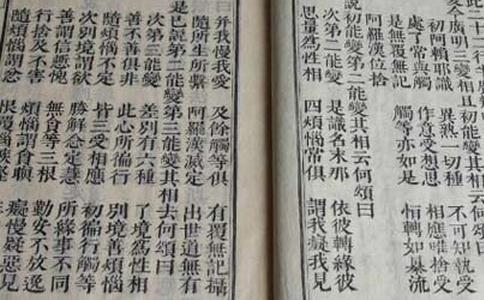 今廣明三變相且初能變其相云何頌曰
初阿賴耶識 異熟一切種 不可知執受
處了常與觸 作意受想思 相應唯捨受
是無覆無記 觸等亦如是 恒轉如暴流
阿羅漢位捨
初能變第二能變其相云何頌曰
次第二能變 是識名末那 依彼轉緣彼
思量為性相 四煩惱常俱 謂我癡我見
並我慢我愛 及餘觸等俱 有覆無記攝
隨所生所繫 阿羅漢滅定 出世道無有
是已說第二能變第三能變其相云何頌曰
次第三能變 差別有六種 了境為性相
善不善俱非 此心所徧行 別境善煩惱
隨煩惱不定 皆三受相應 初徧行觸等
次別境謂欲 勝解念定慧 所緣事不同
善謂信慚愧 無貪等三根 勤安不放逸
行捨及不害 煩惱謂貪瞋 癡慢疑惡見
隨煩惱謂忿 恨覆惱嫉慳